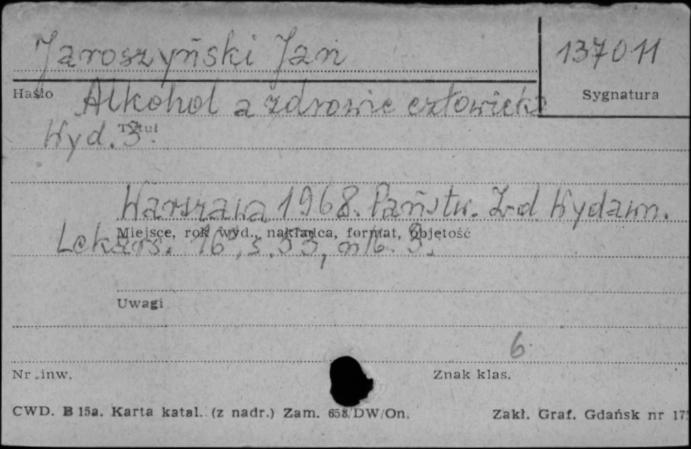 Jaroszyński Jan
137011
Hasło
Sygnatura
Alkohol a zdrowie człowieka
Tytuł
Wyd. 3.
Warszawa 1968. Państw. Z-d Wydawn.
Miejsce, rok wyd., nakładca, format, objętość
Lekars. 16°, s. 53, nlb. 3.
Uwagi
6
Nr .inw.
Znak klas.
CWD. B 15a. Karta katal. (z nadr.) Zam. 658/DW/On.
Zakł. Graf. Gdańsk nr